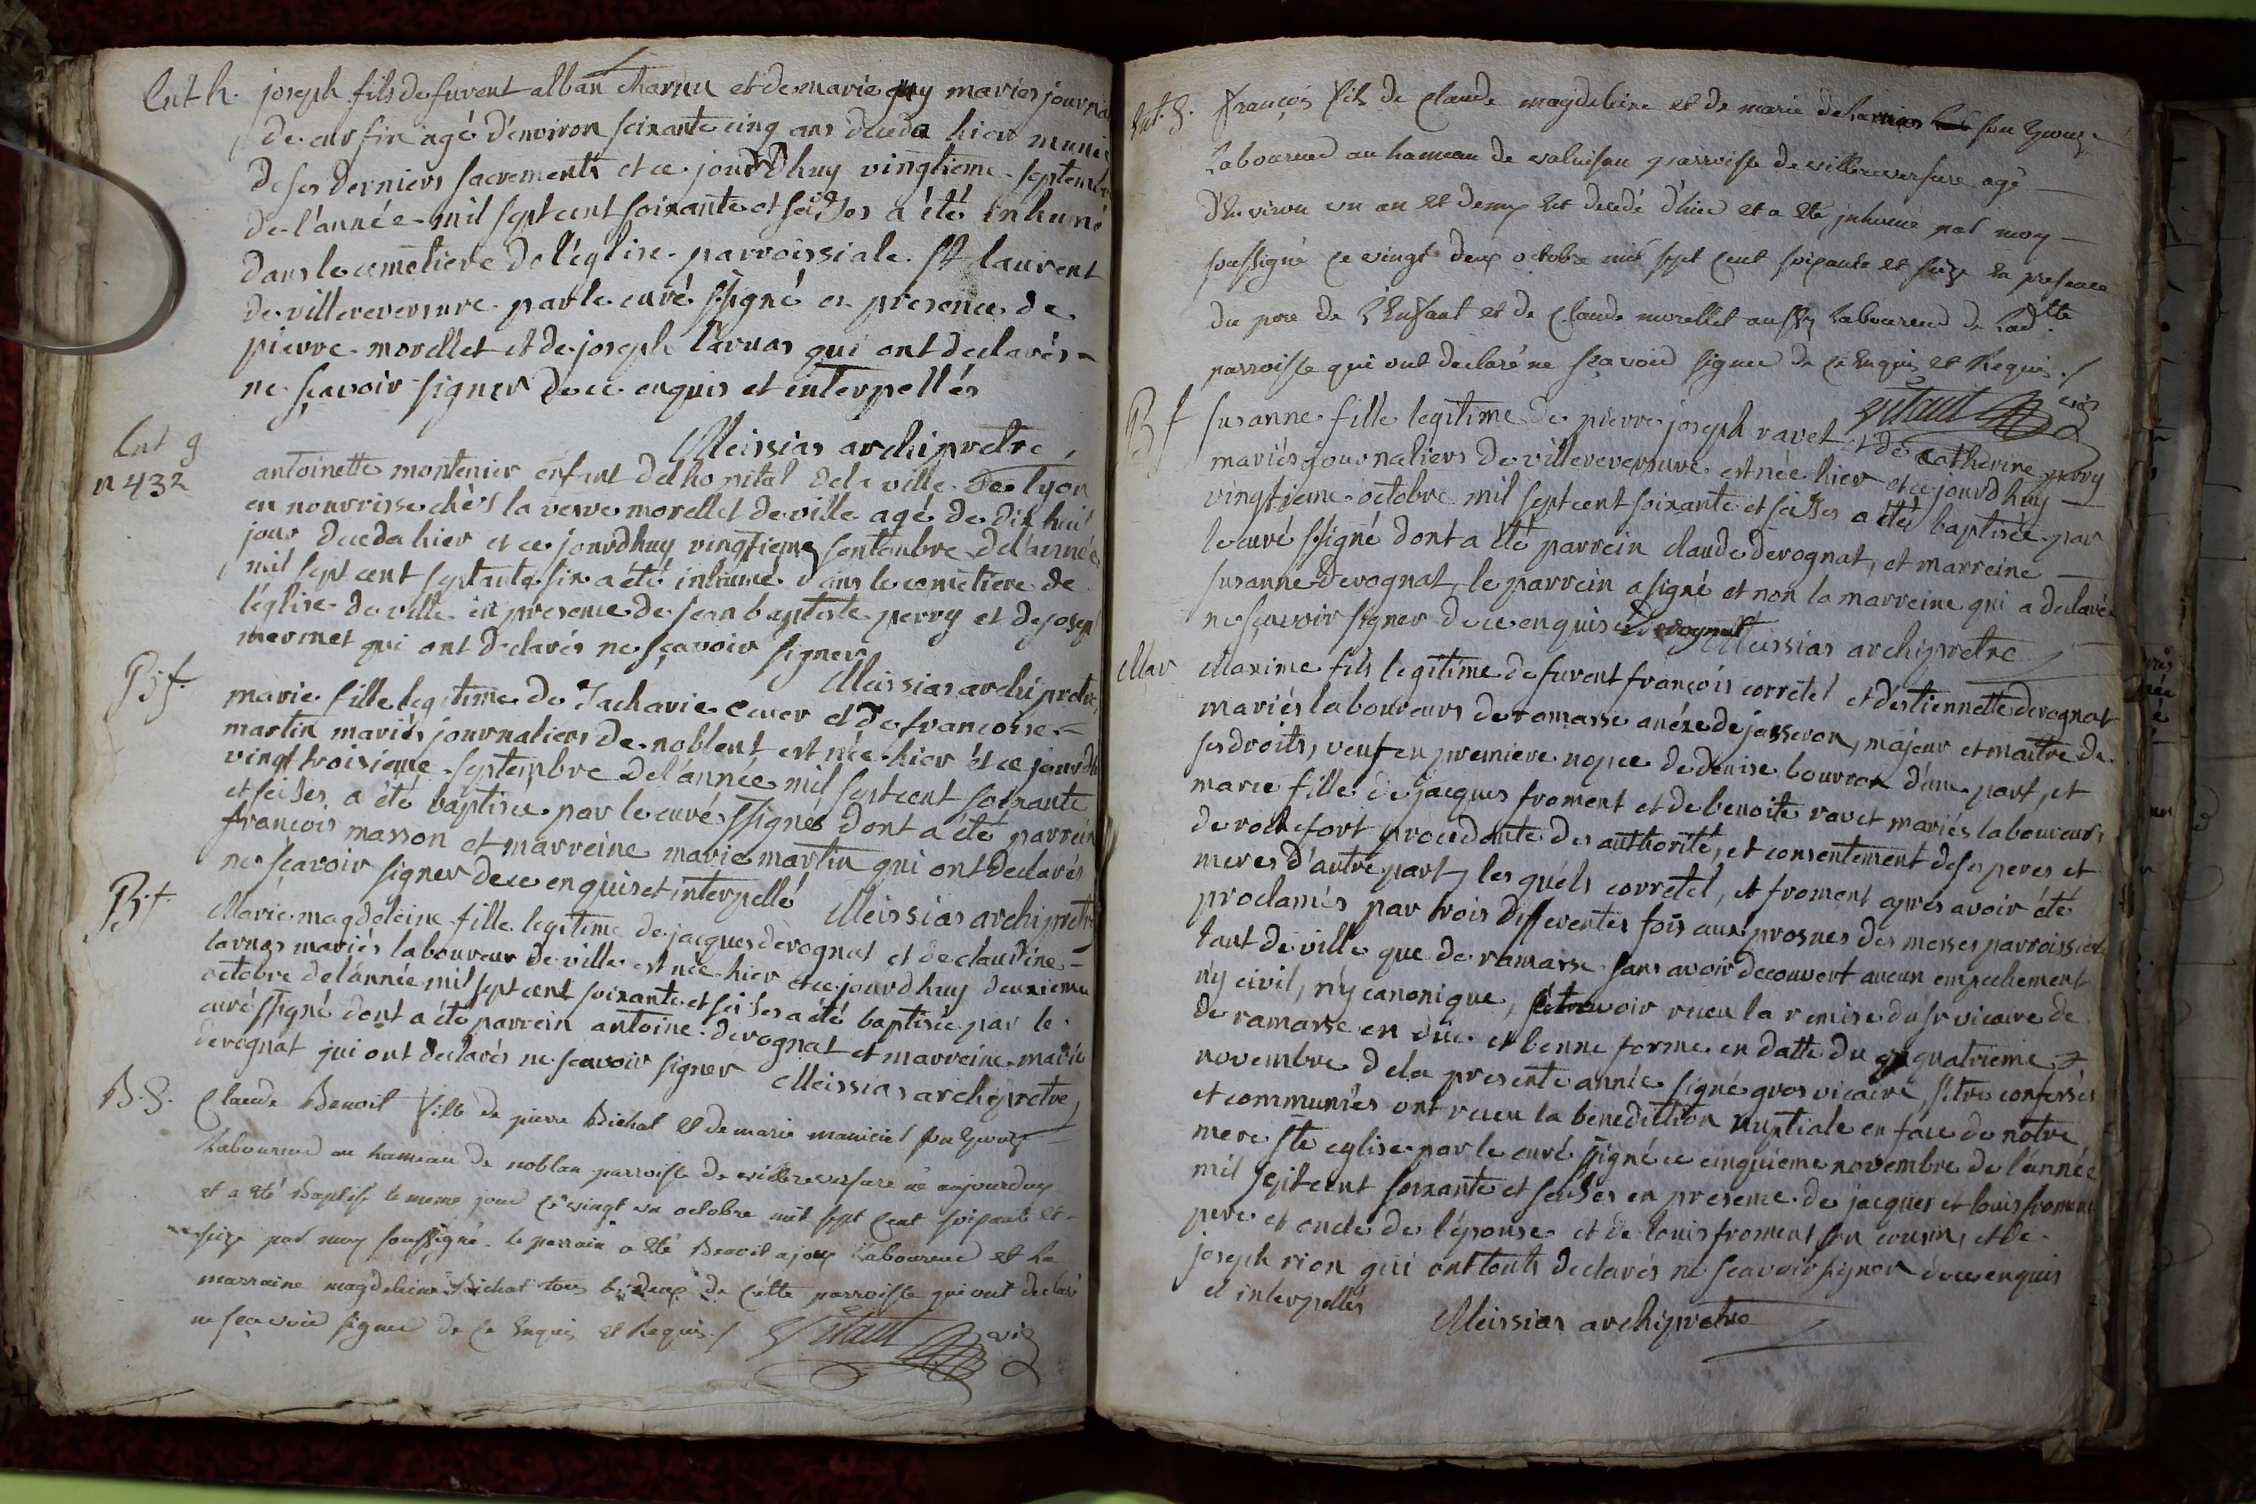 Ent h. joseph fils de furent alban Charnu et de marie guy mariés journa
de curfin agé d'environ soixante cinq ans deceda hier munis
de ses derniers sacrements et ce jourdhuy vingtieme septemb
de l'année mil sept cent soixante et seises a été inhumé
dans le cemetiere de l'église parroissiale St laurent
de villereversure par le curé ssigné en presence de
pierre morellet et de joseph larnas qui ont declarés
ne sçavoir signer de ce enquis et interpellés
Meissias archipretre
Ent g antoinette montenier enfant del hopital de la ville de lyon
n 432 en nourrisse chès la veuve morellet de ville agé de dix huit
jour deceda hier et ce jourdhuy vingtieme septembre de l'année
mil sept cent septante six a été inhumé dans le cemetiere de
l'église de ville en presence de jean baptiste perry et de joseph
mermet qui ont declarés ne sçavoir signer
Meissias archipretre
B f. marie fille legitime de Zacharie cuer et de francoise
martin mariés journaliers de noblent est née hier et ce jourdh
vingt troisieme septembre de l'année mil sept cent soixante
et seises a été baptisée par le curé ssigné dont a été parrein
françois masson et marreine marie martin qui ont declarés
ne sçavoir signer de ce enquis et interpellé
Meissias archipretre
B f. Marie magdeleine fille legitime de jacques derognat et de claudine
larnas mariés laboureur de ville est née hier et ce jourdhuy deuxieme
octobre de l'année mil sept cent soixante et seises a été baptisée par le
curé ssigné dont a été parrein antoine derognat et marreine marie
derognat qui ont declarés ne scavoir signer Meissias archipretre
B. G. Claude Benoit fils de pierre Bichat et de marie maniciel son Epouze
Laboureur au hameau de noblan parroisse de villereversure né aujourduy
et a été Baptisé le meme jour Ce vingt un octobre mil sept Cent soixante et
seize par moy soussigné. le parrain a été Benoit ajoux Laboureur et la
marraine magdeleine Bichat tous les deux de Cette parroisse qui ont declaré
ne sçavoir signer de Ce Enquis et Requis./ vic
Ent. G. François fils de Claude magdeleine et de marie delarnas son Epouze
Laboureur au hameau de valuisan parroisse de villereversure agé
D'Environ un an et demy est decedé d'hier et a été inhumé par moy
soussigné Ce vingt deux octobre mil sept Cent soixante et seize En presence
du pere de L'Enfant et de Claude morellet aussy Laboureur de Ladtte
parroisse qui ont declaré ne sçavoir signer de Ce Enquis et Requis./
vic
B f susanne fille legitime de pierre joseph ravet et de catherine perry
mariés journaliers de villereversure est née hier et ce jourdhuy
vingtieme octobre mil sept cent soixante et seises a été baptisée par
le curé ssigné dont a été parrein claude derognat, et marreine
susanne derognat, le parrein a signé et non la marreine qui a declarée
ne sçavoir signer de ce enquise Derognat Meissias archipretre
Mar Maxime fils legitime de furent françois corretel et d'estiennette derognat
mariés laboureurs de romasse anéxe de jasseron, majeur et maitre de
ses droits, veuf en premiere nopce de denise bouvron d'une part, et
marie fille de jacques froment et de benoite ravet mariés laboureurs
de rochefort procedante des authorité, et consentement de ses peres et
meres d'autre part, lesquéls corretel, et froment après avoir été
proclamés par trois differentes fois aux prosnes des messes parroissiale
tant de ville que de ramasse sans avoir decouvert aucun empechement
n'y civil, n'y canonique, et avoir receu la remise du sr vicaire de
de ramasse en due et bonne forme en datte du quatrieme
novembre de la presente année signé gros vicaire, s'etre confessés
et communiés ont receu la benediction nuptiale en face de notre
mere ste eglise par le curé ssigné ce cinquieme novembre de l'année
mil sept cent soixante et seises en presence de jacques et louis froment
pere et oncle de l'épouse et de louis froment son cousin, et de
joseph rion qui ont touts declarés ne sçavoir signer de ce enquis
et interpellés Meissias archipretre